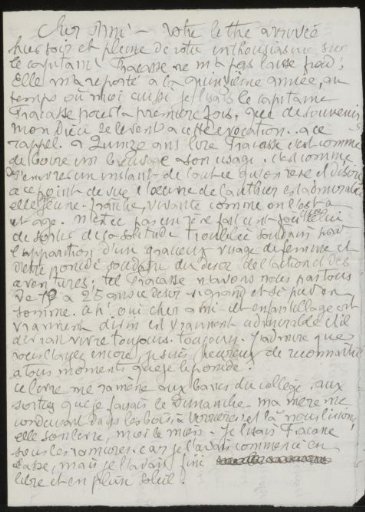 Cher Ami — Votre lettre arrivée
hier soir et pleine de votre enthousiasme sur
le capitaine Fracasse ne m'a pas laissé froid,
Elle m'a reporté à la quinzième année, au
temps où moi aussi je lisais le capitaine
Fracasse pour la première fois. Que de souvenirs
mon Dieu se lèvent à cette évocation. à ce
rappel. à quinze ans lire Fracasse c'est comme
de boire un breuvage à son usage. c'est comme
l'oeuvre de Gautier est admirable
elle jeune, vivante comme on l'est à
cet âge. N'était ce pas un rêve
de sortir de sa solitude troublée soudain par
l'apparition d'un gracieux visage de femme et
d'être soudain du désir de l'action et des
aventures, tel Fracasse n'avons nous pas tous
De 15 à 25 ans ce désir si grand et si peu en
somme. ah! oui cher ami cet enfantillage est
vraiment divin est vraiment admirable et il
devrait vivre toujours toujours. J'admire que
vous l'ayez encore, je suis heureux de reconnaître
à tous moments que je l'ai
ce livre me ramène aux bancs du collège, aux
sorties que je faisais le Dimanche ma mère me
conduisant dans les bois à Verrières et là nous lisions,
elle son livre, moi le mien. Je lisais Fracasse
sous les ramures car je l'avais commencé en
classe, mais je l'avais fini
libre et en plein soleil.